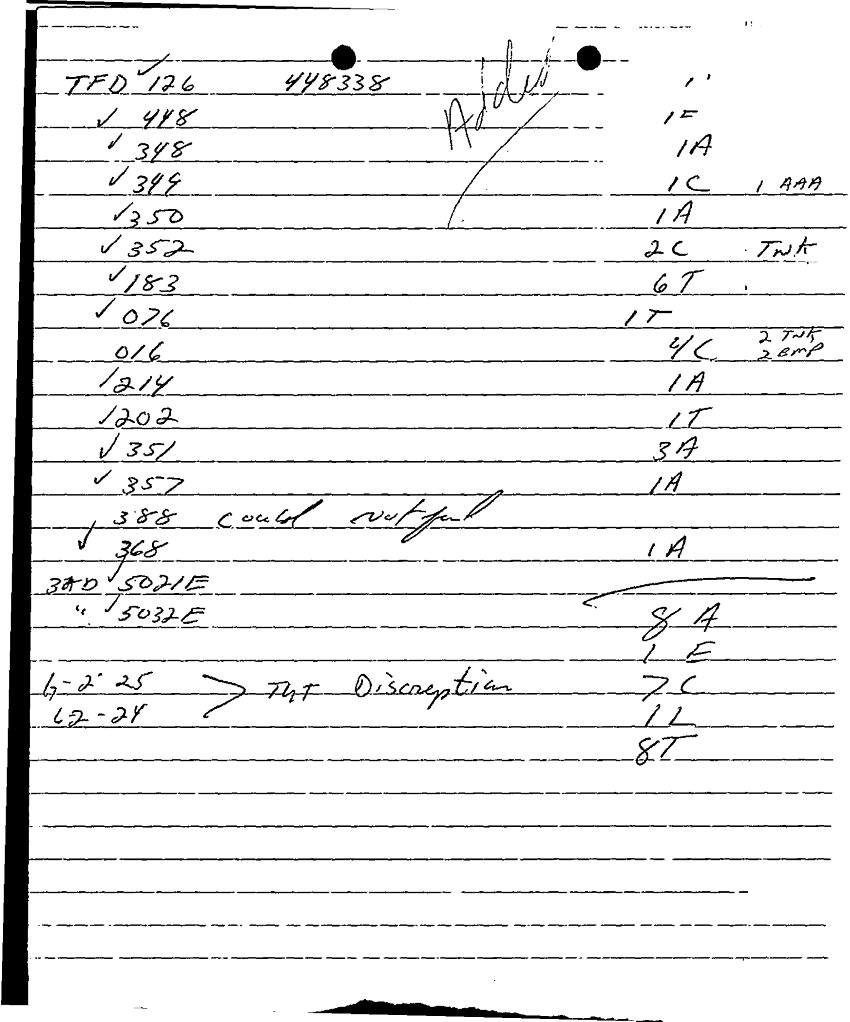 TFD ✓126 448338 Added
✓ 448 1E
✓ 348 1A
✓ 349 1C 1 AAA
✓350 1A
✓ 352 2C TWK
✓183 6T
✓ 076 1T
016 4C 2 TWK
2 BMP
1214 1A
1202 1T
✓ 351 3A
✓ 357 1A
388 could not find
✓ 368 1A
✓5021E
" ✓5032E
8 A
1 E
25 > TGT Discreption 7 C
62-24 1 L
8T